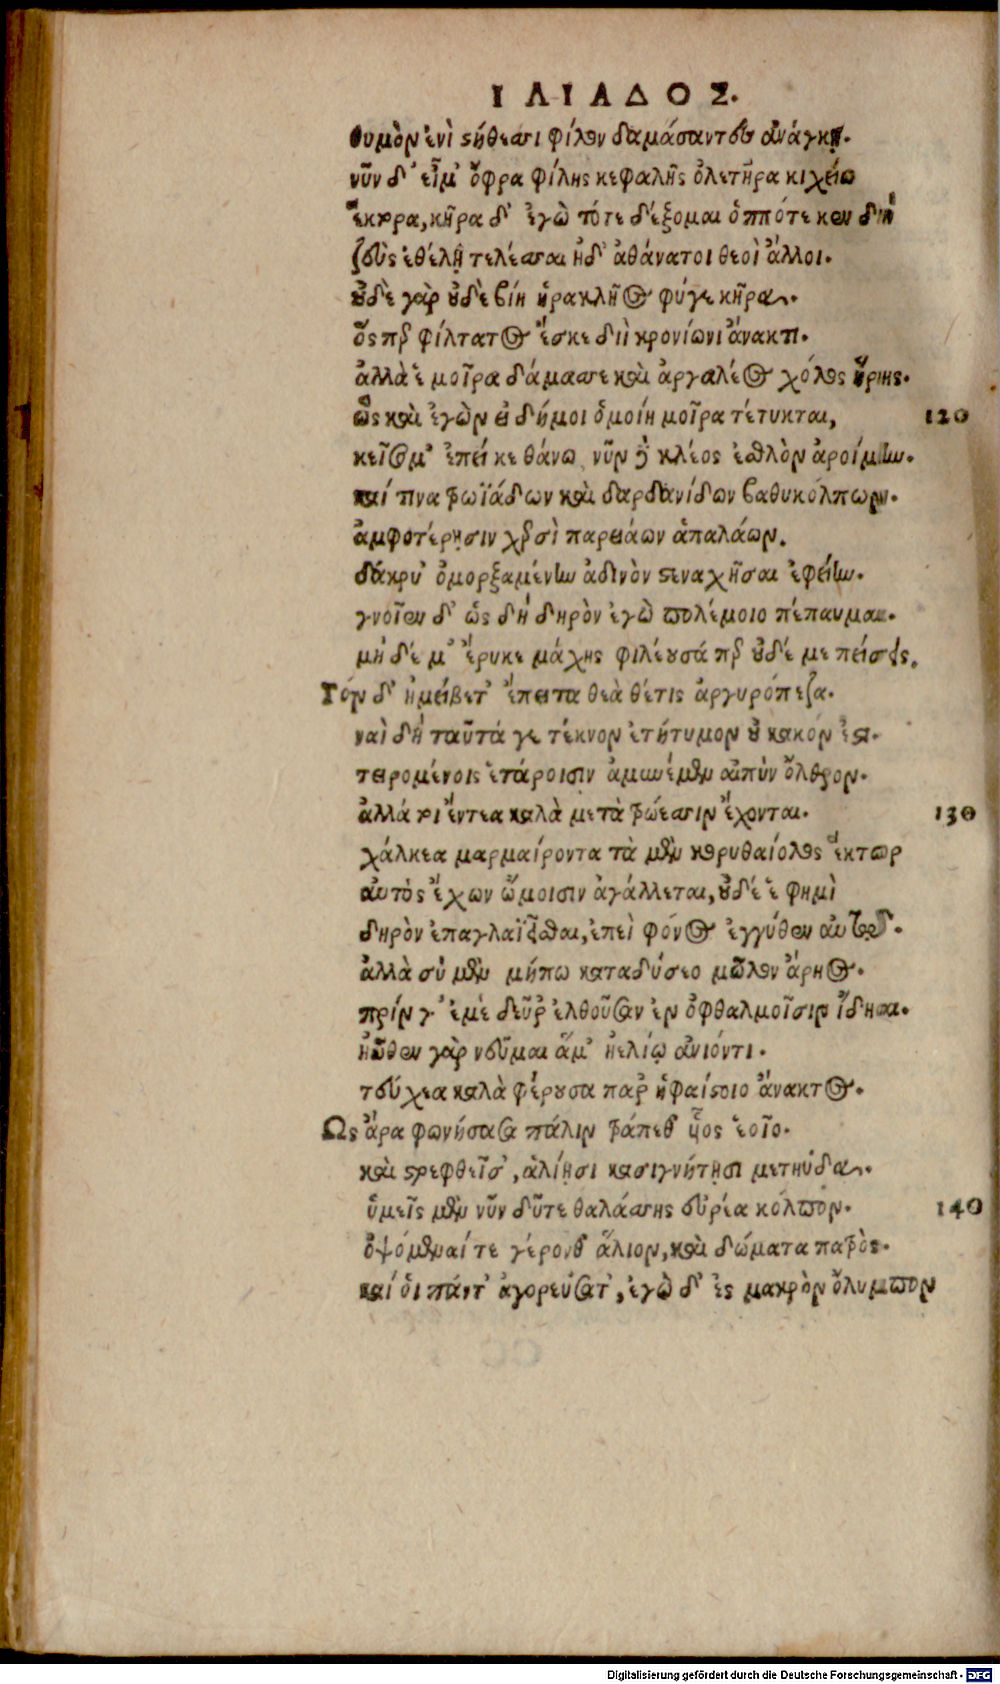 ΙΛΙΑΔΟΣ.
θυμὸν ἐνὶ στήθεσσι φίλον δαμάσαντες ἀνάγκῃ.
νῦν δ' εἶμ' ὄφρα φίλης κεφαλῆς ὀλετῆρα κιχείω
ἕκτορα, κῆρα δ' ἐγὼ τότε δέξομαι ὁππότε κεν δὴ
ζεὺς ἐθέλῃ τελέσαι ἠδ' ἀθάνατοι θεοὶ ἄλλοι.
οὐδὲ γὰρ οὐδὲ βίη ἡρακλῆος φύγε κῆρα.
ὅς περ φίλτατος ἔσκε διὶ κρονίωνι ἄνακτι.
ἀλλὰ ἑ μοῖρα δάμασσε καὶ ἀργαλέος χόλος ἥρης.
ὣς καὶ ἐγὼν εἰ δή μοι ὁμοίη μοῖρα τέτυκται, 120
κείσομ' ἐπεί κε θάνω, νῦν δὲ κλέος ἐσθλὸν ἀροίμην.
καί τινα τρωϊάδων καὶ δαρδανίδων βαθυκόλπων.
ἀμφοτέρῃσιν χερσὶ παρειάων ἁπαλάων.
δάκρυ' ὀμορξαμένην ἀδινὸν στεναχῆσαι ἐφείην.
γνοῖεν δ' ὡς δὴ δηρὸν ἐγὼ πολέμοιο πέπαυμαι.
μὴ δέ μ' ἔρυκε μάχης φιλέουσά περ οὐδέ με πείσεις.
Τὸν δ' ἠμείβετ' ἔπειτα θεὰ θέτις ἀργυρόπεζα.
ναὶ δὴ ταῦτά γε τέκνον ἐτήτυμον οὐ κακόν ἐστι.
τειρομένοις ἑτάροισιν ἀμυνέμεν αἰπὺν ὄλεθρον.
ἀλλά τοι ἔντεα καλὰ μετὰ τρώεσσιν ἔχονται. 130
χάλκεα μαρμαίροντα τὰ μὲν κορυθαίολος ἕκτωρ
αὐτὸς ἔχων ὤμοισιν ἀγάλλεται, οὐδέ ἑ φημὶ
δηρὸν ἐπαγλαϊεῖσθαι, ἐπεὶ φόνος ἐγγύθεν αὐτῷ.
ἀλλὰ σὺ μὲν μήπω καταδύσεο μῶλον ἄρηος.
πρίν γ' ἐμὲ δεῦρ' ἐλθοῦσαν ἐν ὀφθαλμοῖσιν ἴδηαι.
ἠῶθεν γὰρ νεῦμαι ἅμ' ἠελίῳ ἀνιόντι.
τεύχεα καλὰ φέρουσα παρ' ἡφαίστοιο ἄνακτος.
Ὣς ἄρα φωνήσασα πάλιν τράπεθ' υἷος ἑοῖο.
καὶ στρεφθεῖσ', ἁλίῃσι κασιγνήτῃσι μετηύδα.
ὑμεῖς μὲν νῦν δῦτε θαλάσσης εὐρέα κόλπον. 140
ὀψόμεναί τε γέρονθ' ἅλιον, καὶ δώματα πατρὸς.
καί οἱ πάντ' ἀγορεύσατ', ἐγὼ δ' ἐς μακρὸν ὄλυμπον
Digitalisierung gefördert durch die Deutsche Forschungsgemeinschaft - DFG